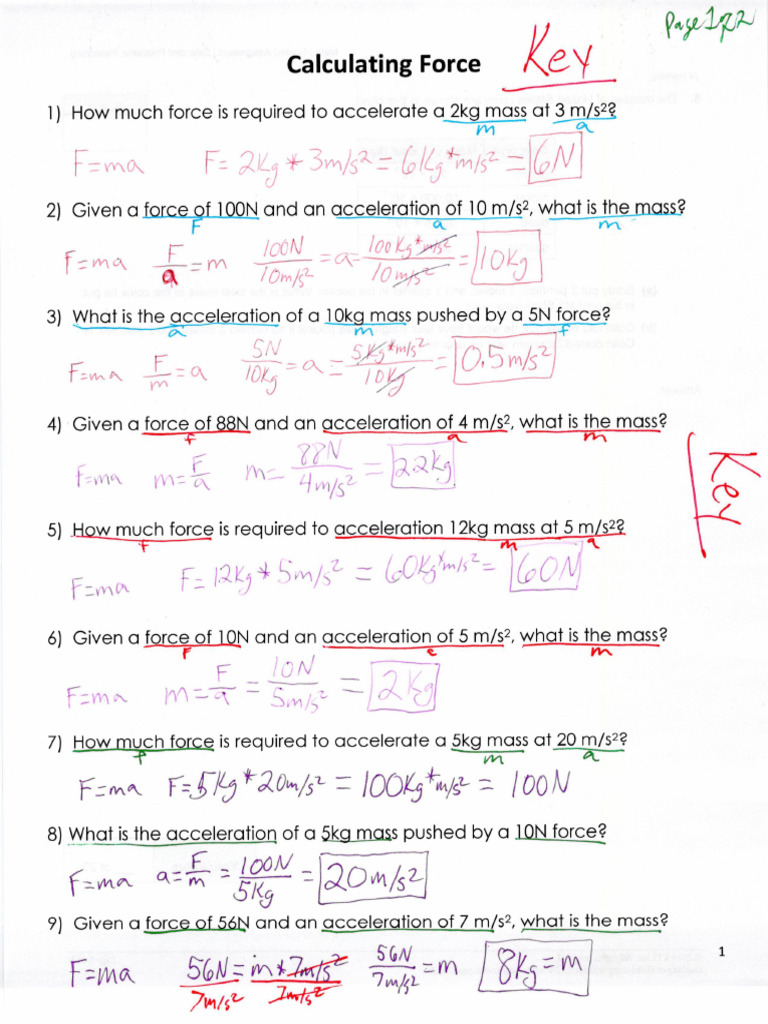 Page 1 of 2
Calculating Force Key
1) How much force is required to accelerate a 2kg mass at 3 m/s²?
m a
F=ma F= 2Kg * 3m/s² = 6Kg*m/s² = 6N
2) Given a force of 100N and an acceleration of 10 m/s², what is the mass?
F a m
F=ma F/a = m 100N/10m/s² = a = 100Kg*m/s²/10m/s² = 10Kg
3) What is the acceleration of a 10kg mass pushed by a 5N force?
a m f
F=ma F/m = a 5N/10Kg = a = 5Kg*m/s²/10Kg = 0.5m/s²
4) Given a force of 88N and an acceleration of 4 m/s², what is the mass?
f a m
F=ma m=F/a m= 88N/4m/s² = 22Kg
Key
5) How much force is required to acceleration 12kg mass at 5 m/s²?
f m a
F=ma F= 12Kg * 5m/s² = 60Kg*m/s² = 60N
6) Given a force of 10N and an acceleration of 5 m/s², what is the mass?
F m
F=ma m= F/a = 10N/5m/s² = 2Kg
7) How much force is required to accelerate a 5kg mass at 20 m/s²?
f m a
F=ma F=5Kg*20m/s² = 100Kg*m/s² = 100N
8) What is the acceleration of a 5kg mass pushed by a 10N force?
F=ma a= F/m = 100N/5Kg = 20m/s²
9) Given a force of 56N and an acceleration of 7 m/s², what is the mass?
1
F=ma 56N/7m/s² = m*7m/s²/7m/s² 56N/7m/s² = m 8Kg=m